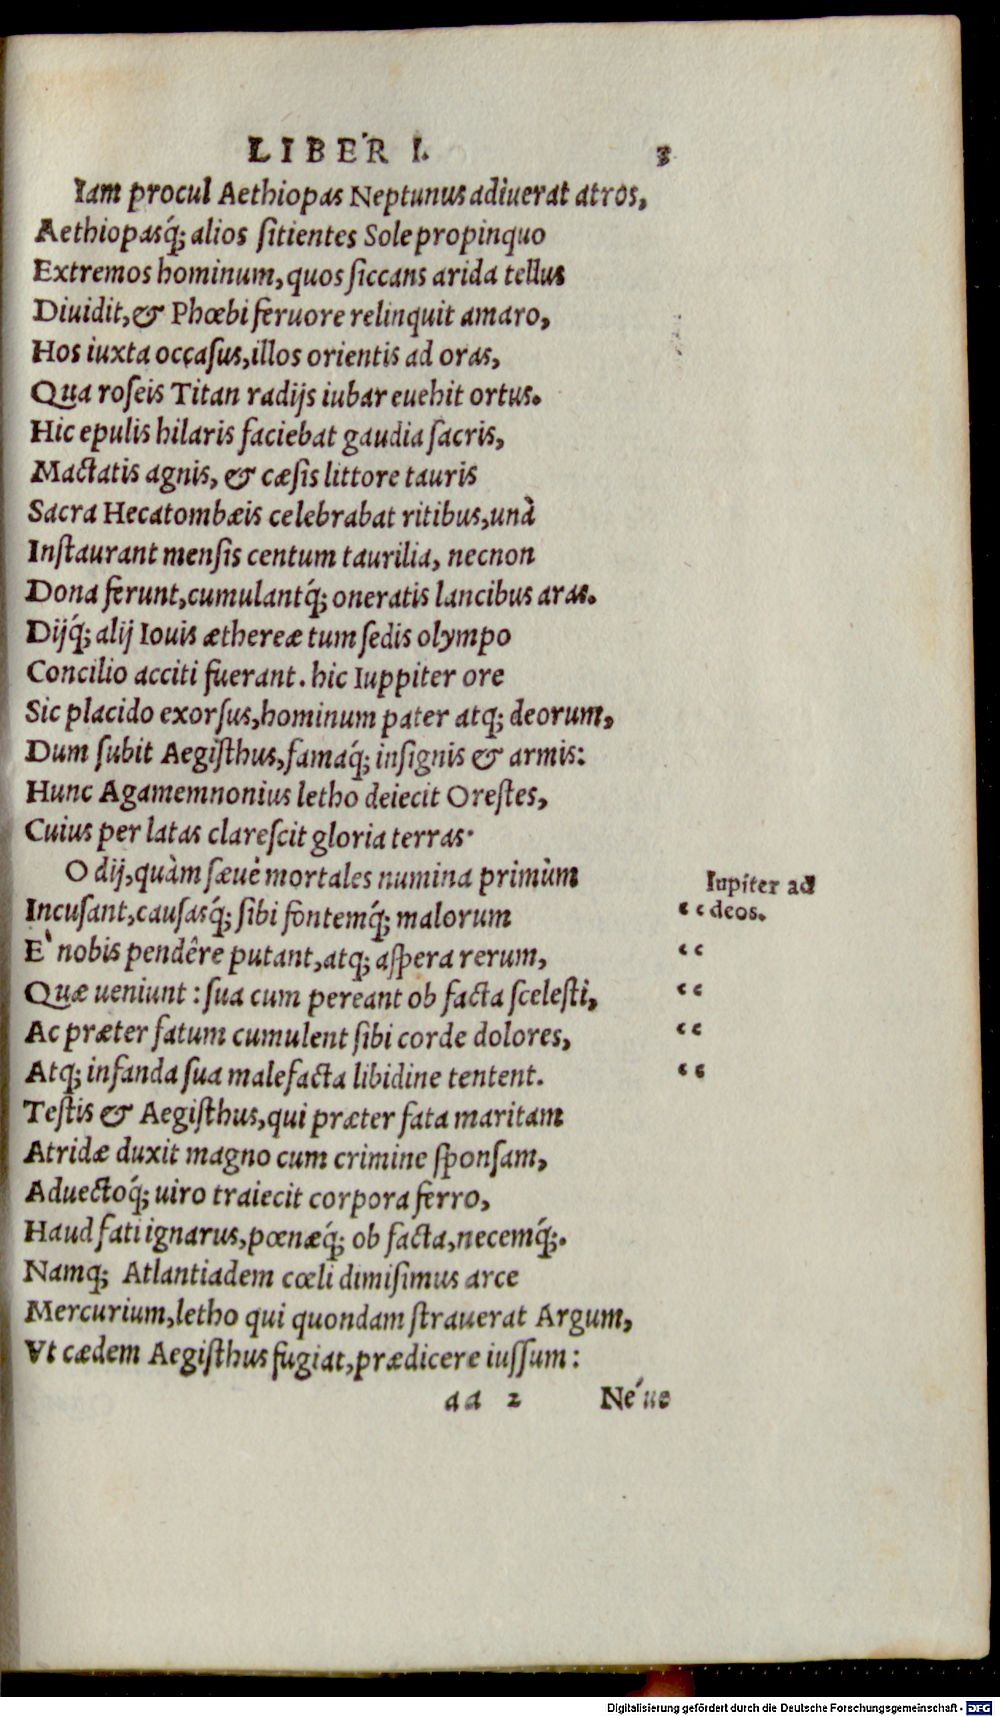 LIBER I. 3
Iam procul Aethiopas Neptunus adiuerat atros,
Aethiopasq́; alios ſitientes Sole propinquo
Extremos hominum, quos ſiccans arida tellus
Diuidit, & Phœbi feruore relinquit amaro,
Hos iuxta occaſus, illos orientis ad oras,
Qua roſeis Titan radijs iubar euehit ortus.
Hic epulis hilaris faciebat gaudia ſacris,
Mactatis agnis, & cæſis littore tauris
Sacra Hecatombæis celebrabat ritibus, unà
Inſtaurant menſis centum taurilia, necnon
Dona ferunt, cumulantq́; oneratis lancibus aras.
Dijq́; alij Iouis æthereæ tum ſedis olympo
Concilio acciti fuerant. hic Iuppiter ore
Sic placido exorſus, hominum pater atq; deorum,
Dum ſubit Aegiſthus, famaq́; inſignis & armis:
Hunc Agamemnonius letho deiecit Oreſtes,
Cuius per latas clareſcit gloria terras.
O dij, quàm ſæuè mortales numina primùm
Iupiter ad
Incuſant, cauſasq́; ſibi fontemq́; malorum
“ deos.
E` nobis pendêre putant, atq; aſpera rerum,
“
Quæ ueniunt: ſua cum pereant ob facta ſceleſti,
“
Ac præter fatum cumulent ſibi corde dolores,
“
Atq; infanda ſua malefacta libidine tentent.
“
Teſtis & Aegiſthus, qui præter fata maritam
Atridæ duxit magno cum crimine ſponſam,
Aduectoq́; uiro traiecit corpora ferro,
Haud fati ignarus, pœnæq́; ob facta, necemq́;.
Namq; Atlantiadem cœli dimiſimus arce
Mercurium, letho qui quondam ſtrauerat Argum,
Vt cædem Aegiſthus fugiat, prædicere iuſſum:
aa 2 Né ue
Digitalisierung gefördert durch die Deutsche Forschungsgemeinschaft - DFG